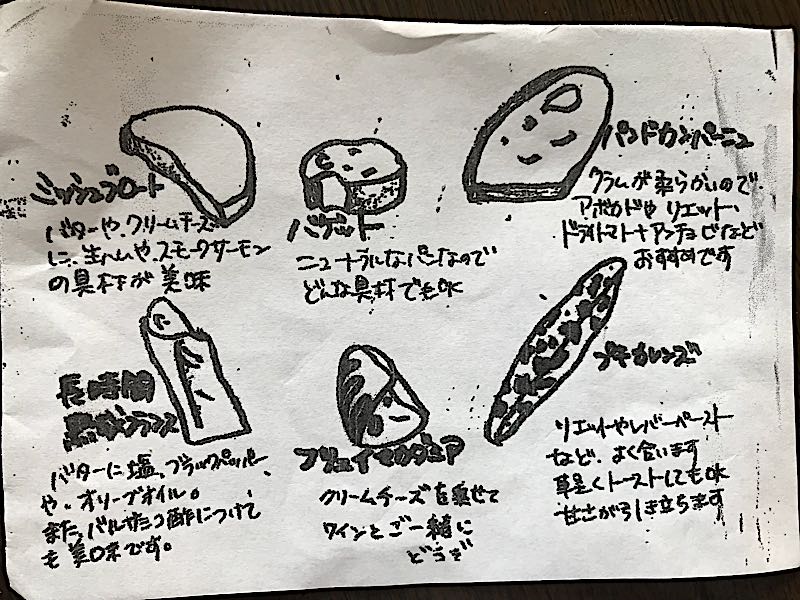 ミッシュブロート
バターや、クリームチーズ
に、生ハムや、スモークサーモン
の具材が美味
バゲット
ニュートラルなパンなので
どんな具材でも
パンドカンパーニュ
クラムが柔らかいので、
アボカドや リエット、
ドライトマト+アンチョビなど
おすすめです
長時間
熟成フランス
バターに塩、ブラックペッパー
や、オリーブオイル。
また、バルサミコ酢につけて
も美味です。
フリュイマカダミア
クリームチーズを乗せて
ワインとご一緒に
どうぞ
プチカレンズ
リエットやレバーペースト
など、よく合います
軽くトーストしても
甘さが引き立ちます